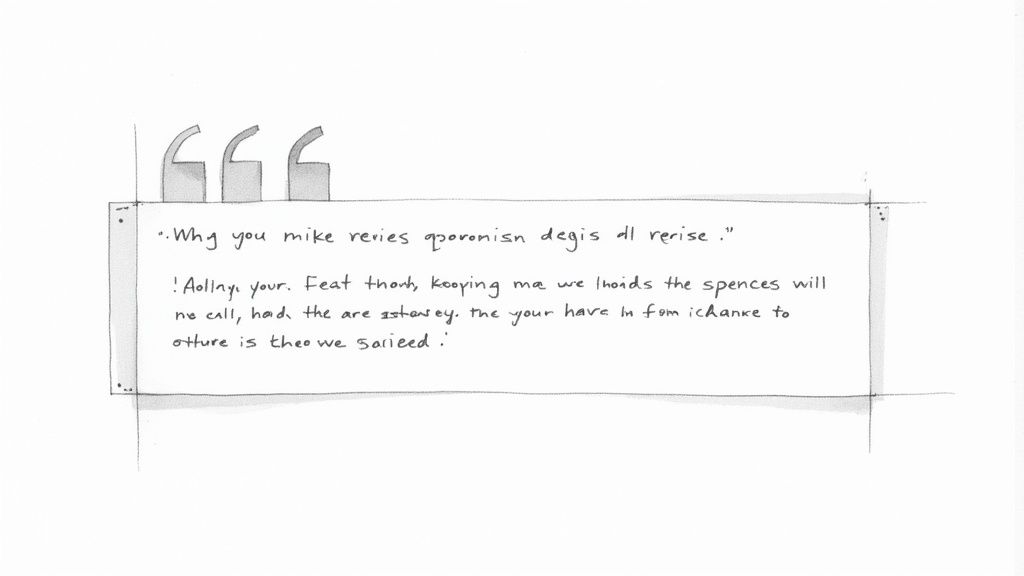 "Why you mike reries qporomisn degis all rerise."
! Aollny, your. Feat thonh, kooping me we lhoids the spences will
no call, had, the are astowsey. the your have in fom ichanre to
otture is theo we sarieed.